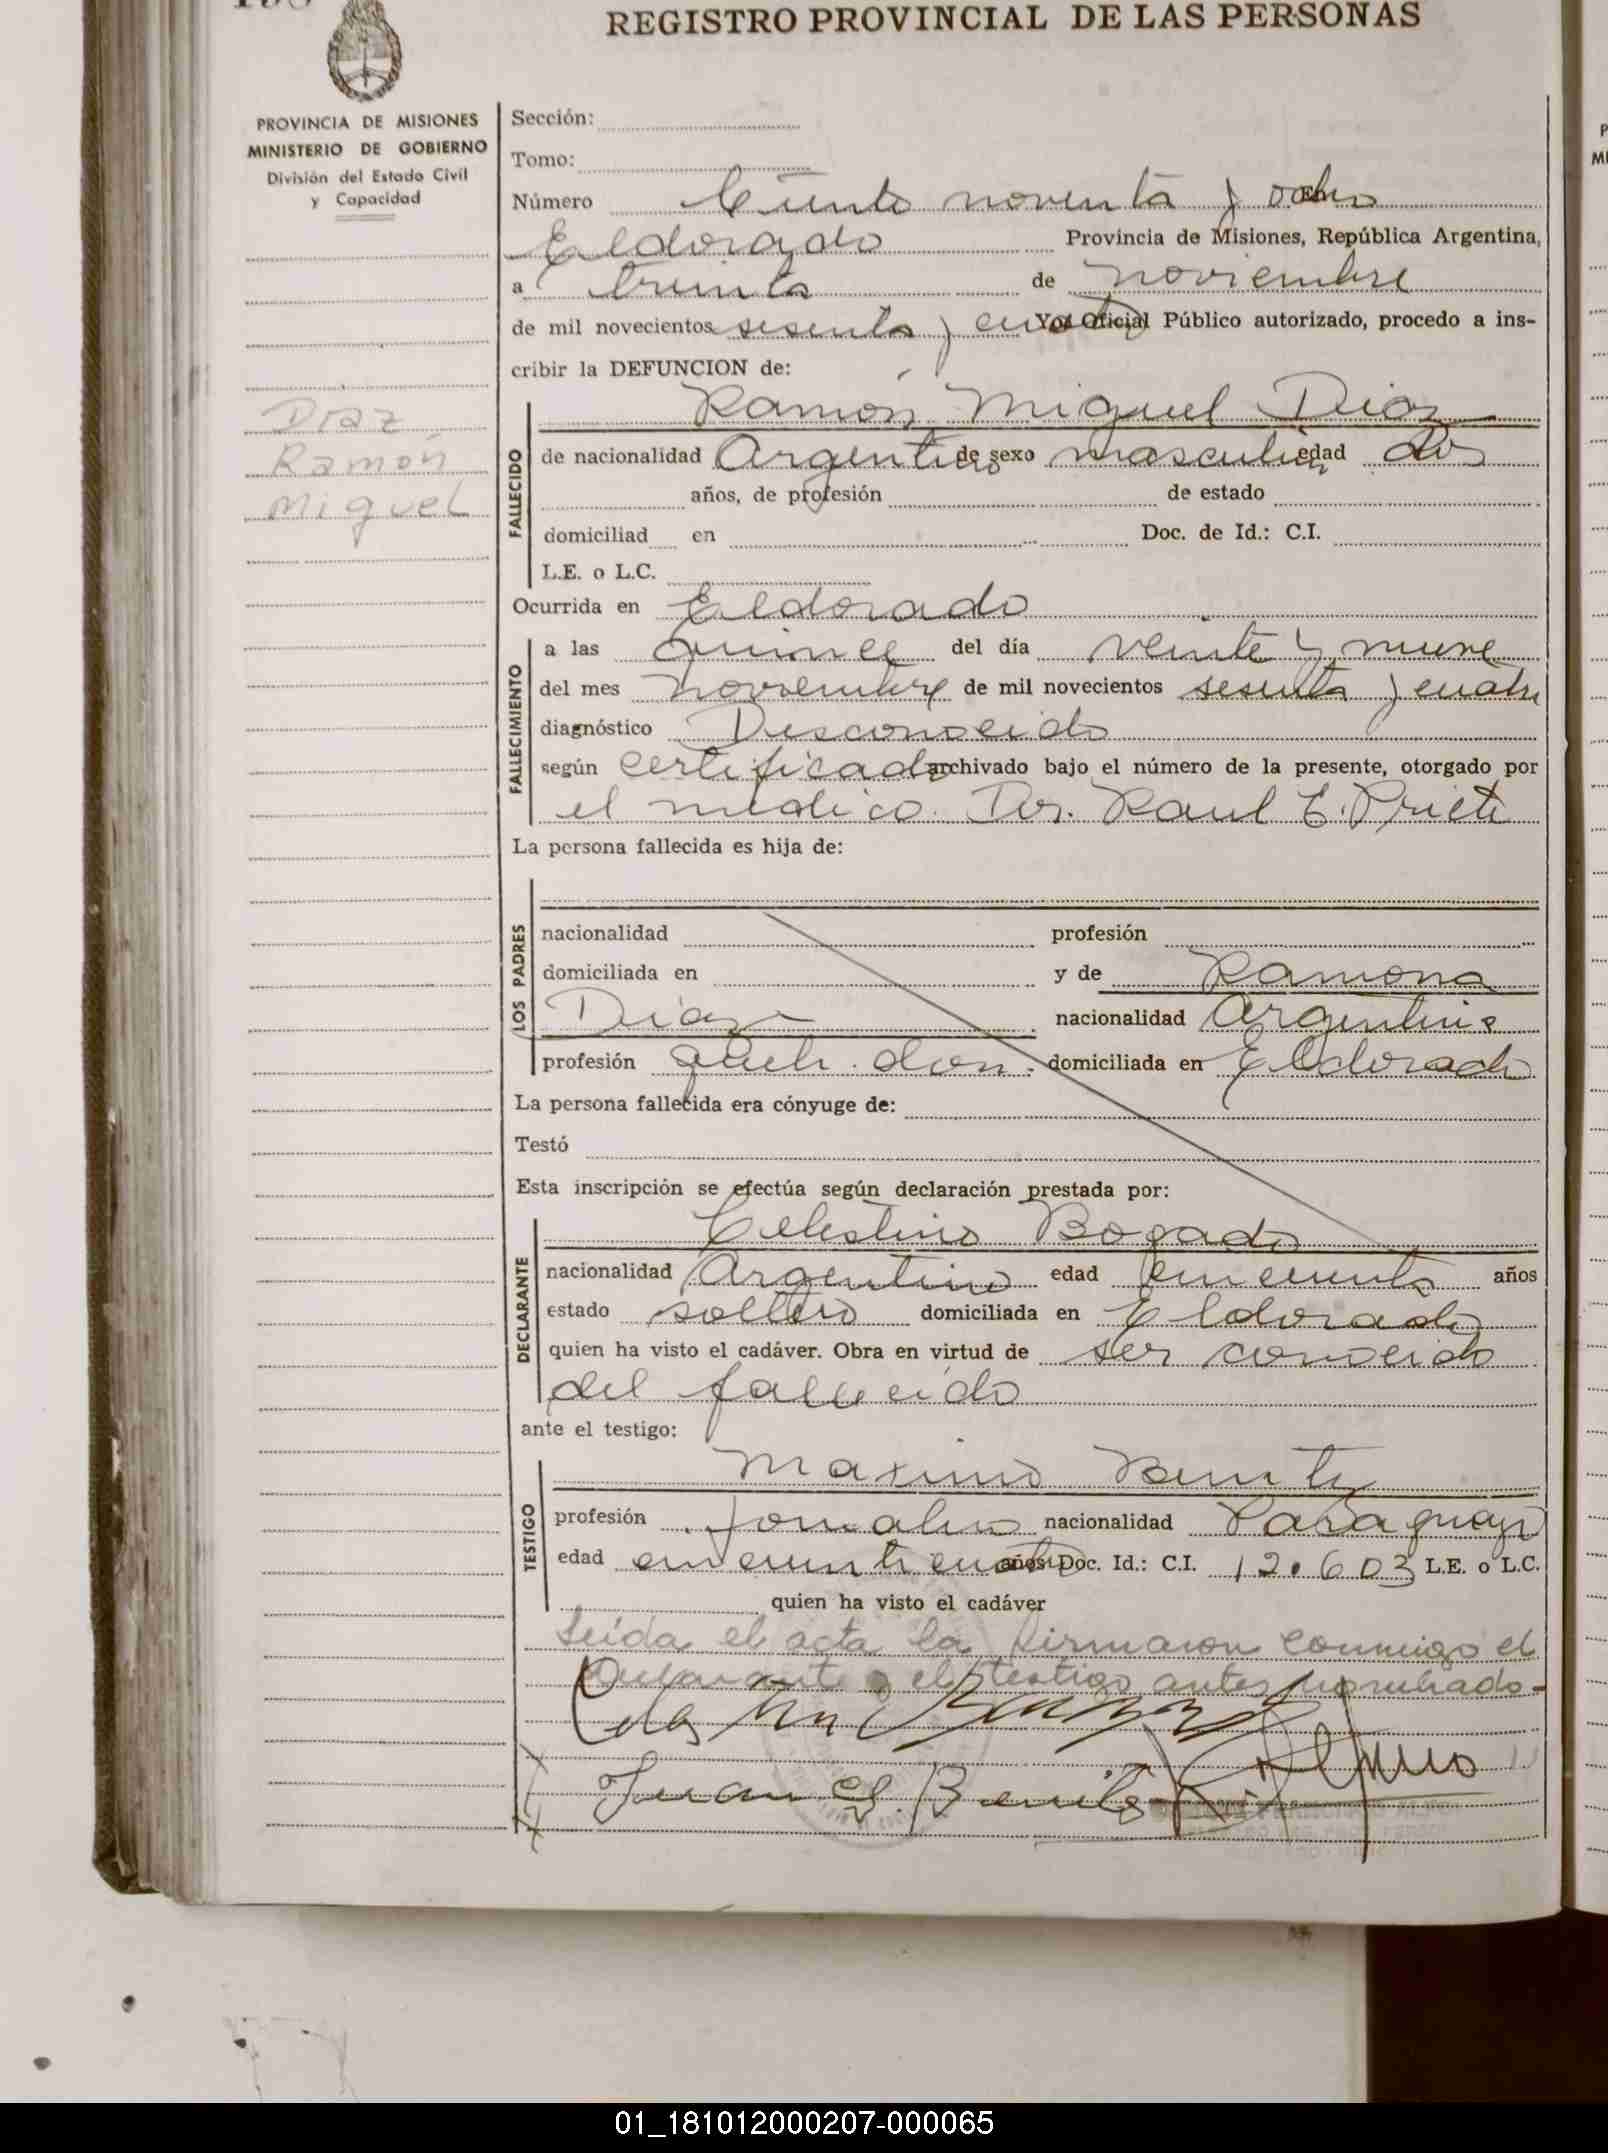 REGISTRO PROVINCIAL DE LAS PERSONAS
PROVINCIA DE MISIONES
MINISTERIO DE GOBIERNO
División del Estado Civil
y Capacidad
Diaz
Ramón
Miguel
Sección:
Tomo:
Número Ciento noventa y ocho En
Eldorado Provincia de Misiones, República Argentina,
a treinta de noviembre
de mil novecientos sesenta y cuatro Yo, Oficial Público autorizado, procedo a ins-
cribir la DEFUNCION de:
FALLECIDO
Ramón Miguel Diaz
de nacionalidad Argentino de sexo masculino edad dos
años, de profesión de estado
domiciliad en Doc. de Id.: C.I.
L.E. o L.C.
Ocurrida en Eldorado
FALLECIMIENTO
a las quince del día veinte y nueve
del mes noviembre de mil novecientos sesenta y cuatro
diagnóstico Desconocido
según certificado archivado bajo el número de la presente, otorgado por
el médico. Dr. Raul E. Prieto
La persona fallecida es hija de:
LOS PADRES
nacionalidad profesión
domiciliada en y de Ramona
Diaz nacionalidad Argentina
profesión queh. dom. domiciliada en Eldorado
La persona fallecida era cónyuge de:
Testó
Esta inscripción se efectúa según declaración prestada por:
DECLARANTE
Celestino Bogado
nacionalidad Argentino edad cincuenta años
estado soltero domiciliada en Eldorado
quien ha visto el cadáver. Obra en virtud de ser conocido
del fallecido
ante el testigo:
TESTIGO
Maximo Benitez
profesión Jornalero nacionalidad Paraguayo
edad cincuenti cuatro años Doc. Id.: C.I. 12.603 L.E. o L.C.
quien ha visto el cadáver
Leida el acta la firmaron conmigo el
declarante y el testigo antes nombrado-
01_181012000207-000065